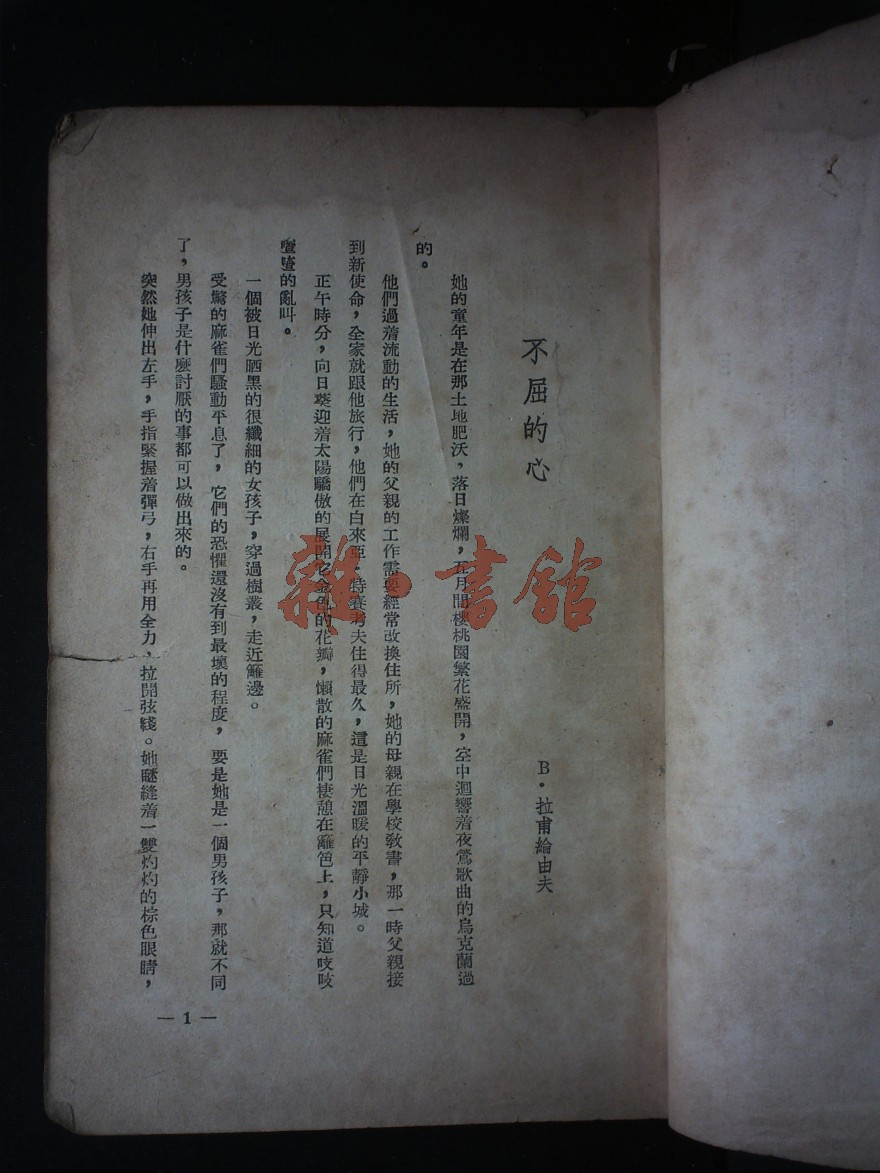 不屈的心
B·拉甫綸由夫
她的童年是在那土地肥沃，落日燦爛，五月間櫻桃園繁花盛開，空中迴響着夜鶯歌曲的烏克蘭過
的。
他們過着流動的生活，她的父親的工作需要經常改換住所，她的母親在學校敎書，那一時父親接
到新使命，全家就跟他旅行，他們在白來亞·特賽考夫住得最久，這是日光溫暖的平靜小城。
正午時分，向日葵迎着太陽驕傲的展開它金色的花瓣，懶散的麻雀們棲憩在籬笆上，只知道吱吱
喳喳的亂叫。
一個被日光晒黑的很纖細的女孩子，穿過樹叢，走近籬邊。
受驚的麻雀們騷動平息了，它們的恐懼還沒有到最壞的程度，要是她是一個男孩子，那就不同
了，男孩子是什麽討厭的事都可以做出來的。
突然她伸出左手，手指緊握着彈弓，右手再用全力，拉開弦綫。她瞇縫着一雙灼灼的棕色眼睛，
— 1 —
雜·書館